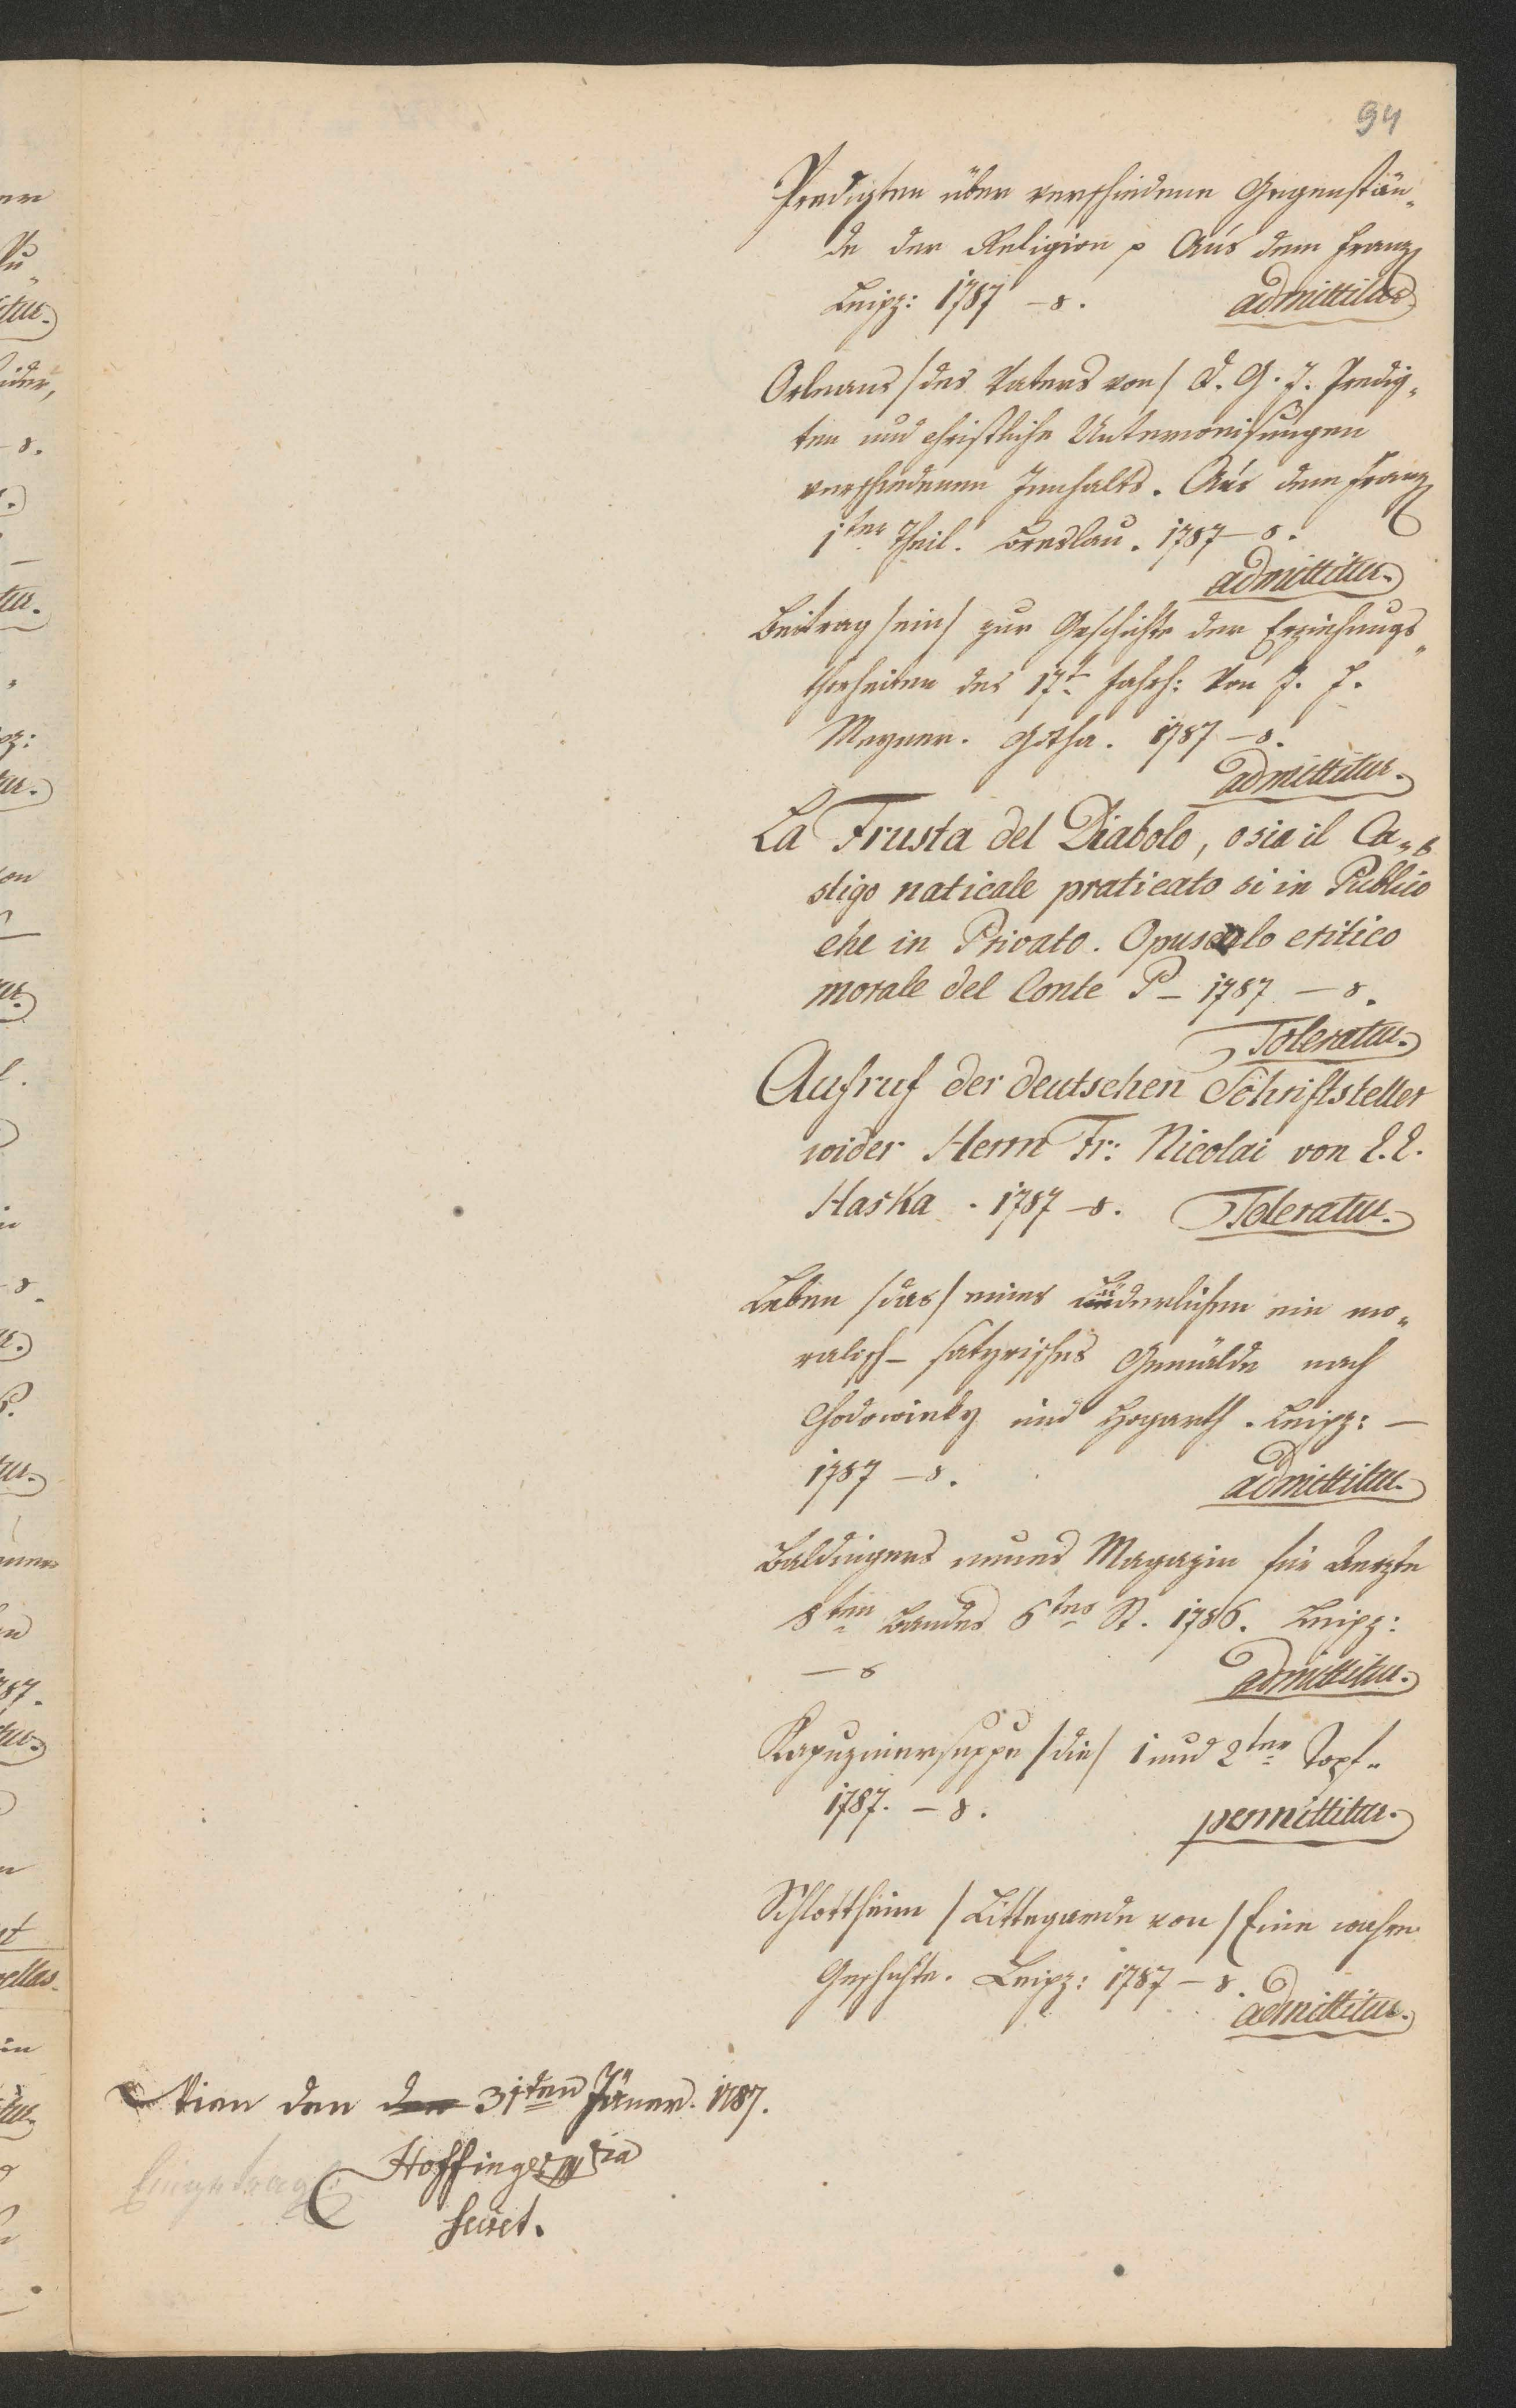 94
Predigten über verschiedene Gegenstän„
de der Religion p Aus dem Franz
Leipz: 1787 – 8. admittitur
Orleans /des Vaters von/ d. G. J. Predig„
ten und christliche Unterweisungen
verschiedenen Innhalts. Aus dem Franz
1ter Theil. Breslau. 1787 – 8.
admittitur.
Beitrag /ein/ zur Geschichte der Erziehungs„
thorheiten des 17t Jahrh: Von J. J.
Meyner. Gotha. 1787 – 8.
admittitur.
La Frusta del Diabolo, osia il Ca„
stigo naticale praticato si in Publico
che in Privato. Opusculo critico
morale del Conte P – 1787 – 8.
Toleratur.
Aufruf der deutschen Schriftsteller
wider Herrn Fr: Nicolai von L. L.
Haska. 1787 – 8. Toleratur.
Leben /das/ eines Lüderlichen ein mo„
ralisch – satyrisches Gemälde nach
Chodowieky und Hogarth. Leipz: –
1787 – 8. admittitur.
Baldingers neues Magazin für Aerzte
8ten Bandes 6tes St. 1786. Leipz:
– 8 admittitur.
Kapuzinersuppe /die/ 1 und 2ter Topf„
1787. – 8. permittitur.
Schlottheim /Littegarde von/ Eine wahre
Geschichte. Leipz: 1787 – 8.
admittitur.
Wien den 31ten Jäner. 1787.
Hoffinger
Secret.